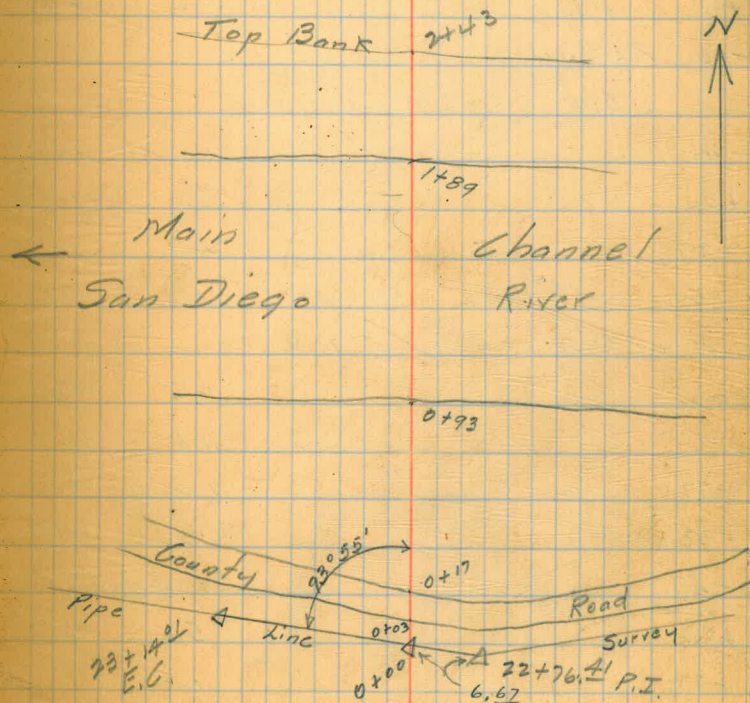 Top Bank 2+43
N
1+89
Main Channel
San Diego River
0+93
93°55'
County Road
0+17
Pipe Line Survey
0+03
23+14.01
E.C.
0+00
22+76.41 P.I.
6.67